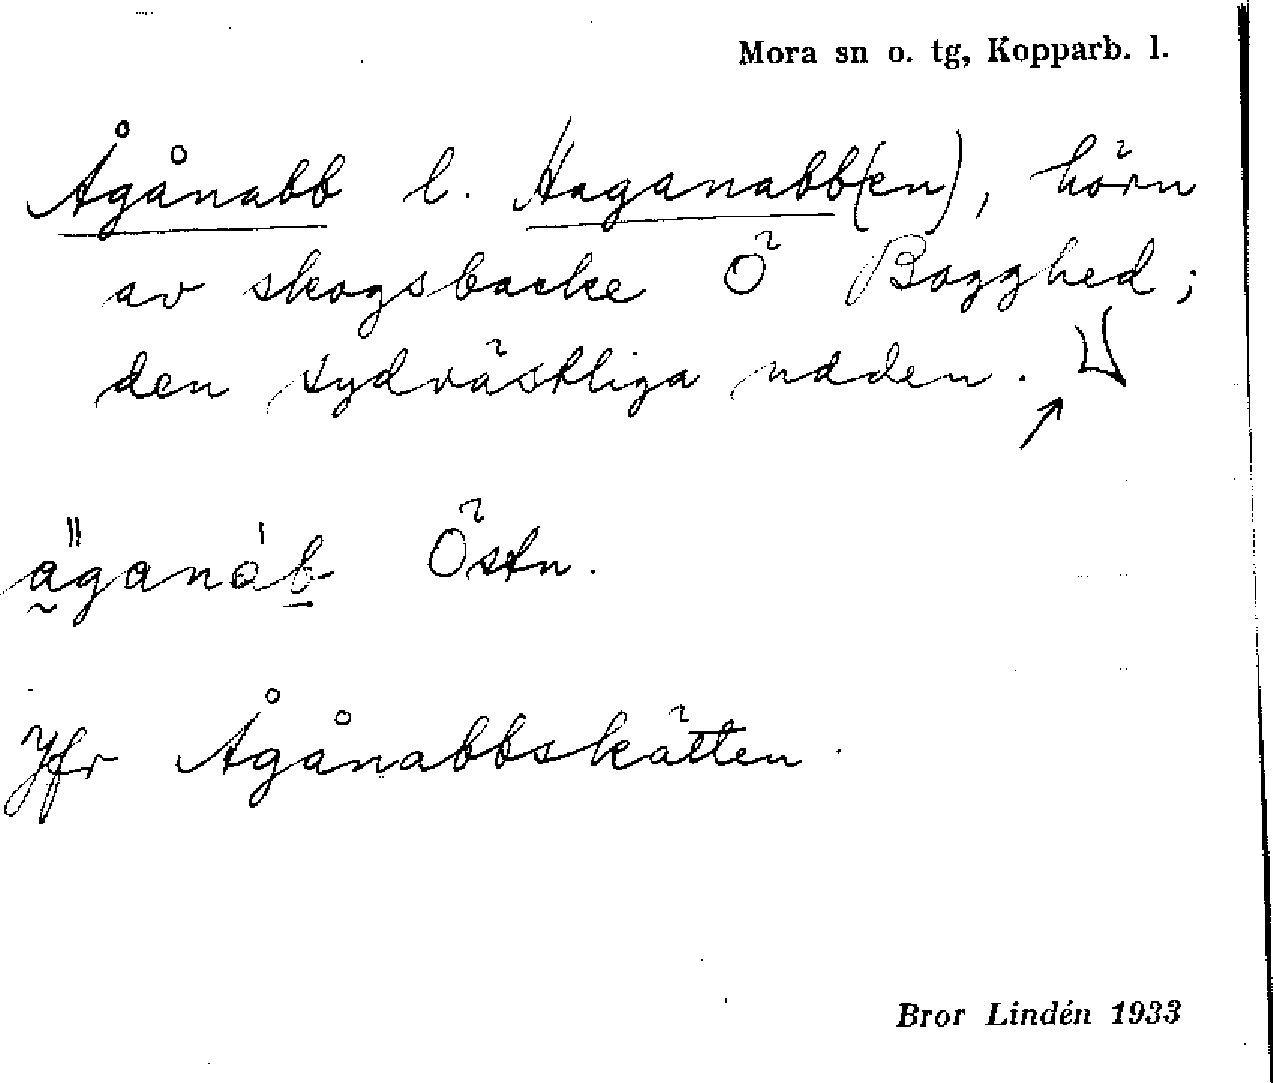 Mora sn o. tg, Kopparb. l.
Ågånabb l. Haganabb(en), hörn
av skogsbacke Ö Bogghed;
den sydvästliga udden.
Östn.
Jfr Ågånabbskätten.
Bror Lindén 1933